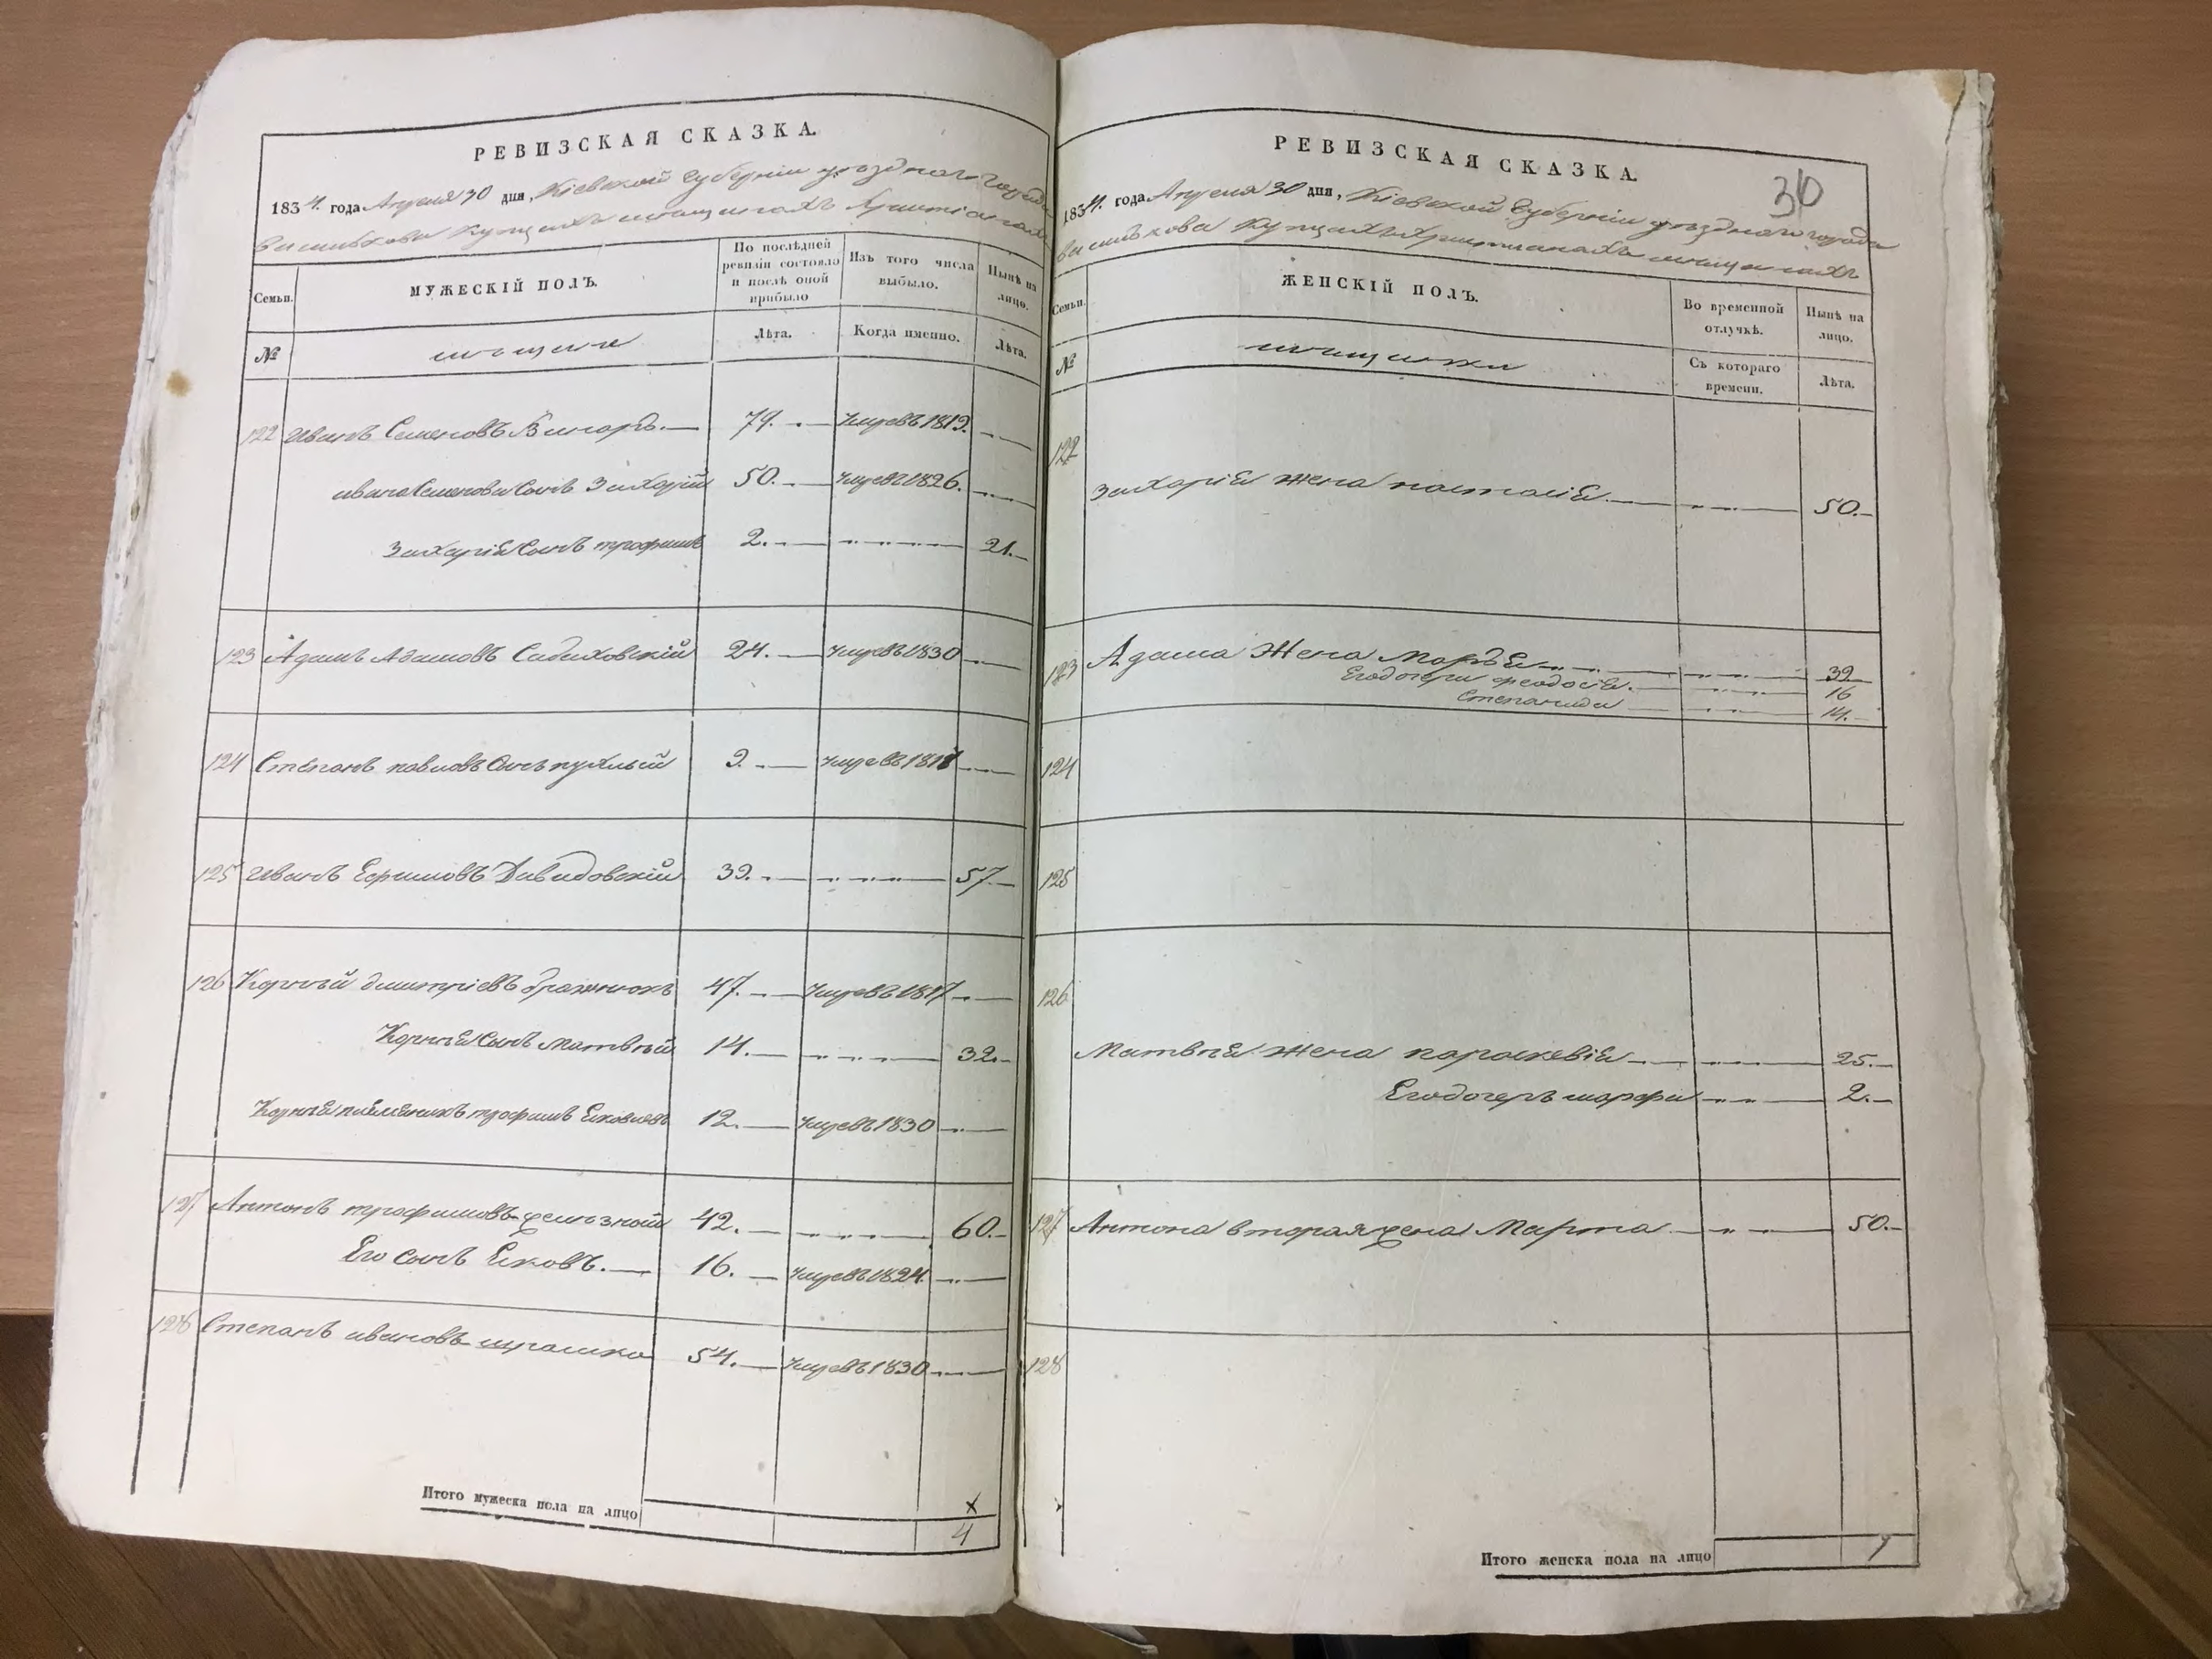 РЕВИЗСКАЯ СКАЗКА.
1834. года Апреля 30 дня, Кіевской Губерніи уѣзднаго города
Василькова Купцахъ мещанахъ Христіанахъ
Семьи.
МУЖЕСКІЙ ПОЛЪ.
По послѣдней
ревизіи состояло
и послѣ оной
прибыло
Изъ того числа
выбыло.
Нынѣ на
лицо.
№
мещане
Лѣта.
Когда именно.
Лѣта.
122 Иванъ Семеновъ 79. умревъ 1819.
ивана Семенова Сынъ Захарій 50. умревъ 1826.
Захарія Сынъ трофимъ 2. 21.
123 Адамъ Адамовъ 24. умревъ 1830
124 Степанъ павловъ Сынъ пухлый 2. умревъ 181
125 Иванъ Ефимовъ Давидовскій 39. 57.
126 Корній дмитріевъ бражникъ 47. умревъ 1817
Корнія Сынъ матвѣй 14. 32.
Корнія племяникъ трофимъ 12. умревъ 1830
127 Антонъ трофимовъ 42. 60.
Его Сынъ Яковъ. 16. умревъ 1824.
128 Степанъ ивановъ 54. умревъ 1830
Итого мужеска пола на лицо
4
РЕВИЗСКАЯ СКАЗКА.
30
1834. года Апреля 30 дня, Кіевской Губерніи уѣзднаго города
Василькова Купцахъ Христіанахъ мещанахъ
Семьи.
ЖЕНСКІЙ ПОЛЪ.
Во временной
отлучкѣ.
Нынѣ на
лицо.
№
мещанки
Съ котораго
времени.
Лѣта.
122
Захарія жена настасія 50.
123 Адама Жена Марья 32
Его дочери феодосія 16
Степанида 14.
124
125
126
Матвѣя жена параскевія 25.
Его дочерь марфа 2.
127 Антона вторая жена Марта 50.
128
Итого женска пола на лицо
7